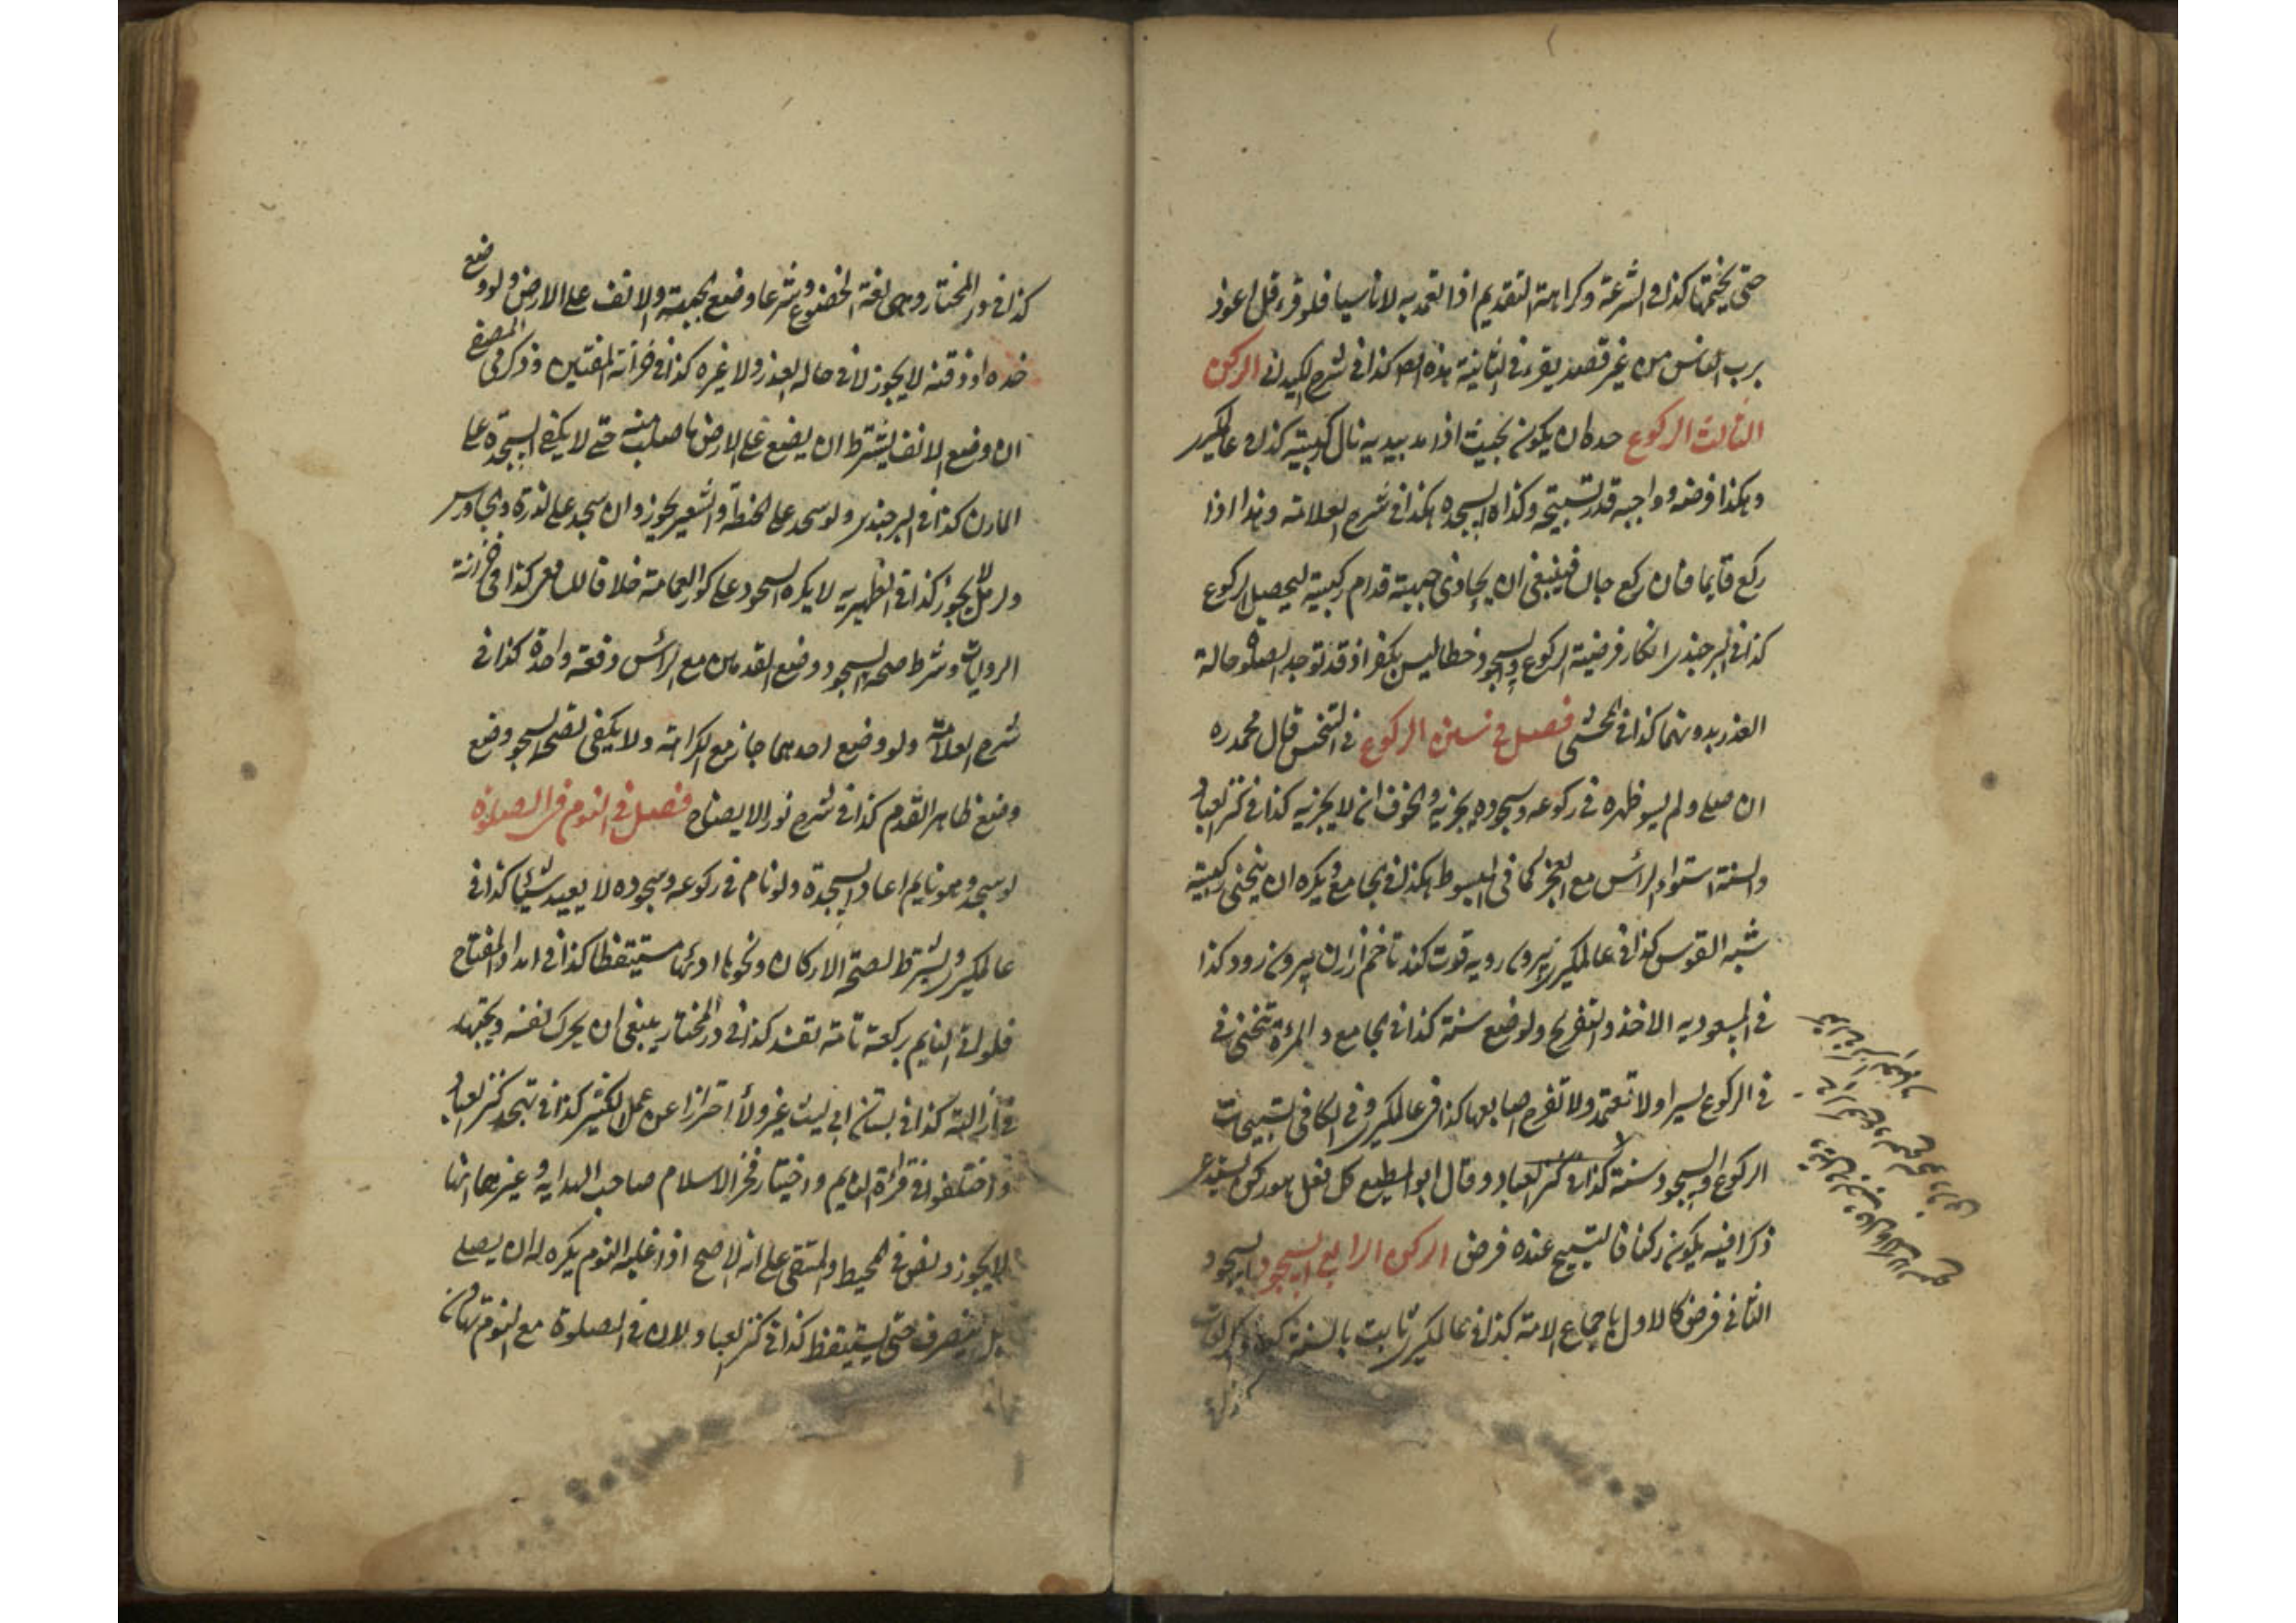 حتى يختمها كذا فى الشرعة وكراهة التقديم اذا تعمد به لا ناسيا فلو قرء قل اعوذ
برب الناس من غير قصد يقرء فى الثانية هذه كذا فى شرح الكيدانى الركن
الثالث الركوع حده ان يكون بحيث اذا مد يديه نال ركبتيه كذا فى عالمكير
وهكذا فرضه وواجبه قدر تسبيحة وكذا السجدة هكذا فى شرح العلامة وهذا اذا
ركع قايما فان ركع جالس فينبغى ان يحاذى جبهته قدام ركبتيه ليحصل الركوع
كذا فى البرجندى انكار فرضية الركوع والسجود خطا ليس بكفر اذ قد توجد الصلوة حالة
العذر بدونهما كذا فى المحشى فصل فى سنن الركوع فى قال محمد ره
ان صلى ولم يسو ظهره فى ركوعه وسجوده يجزيه واخوف ان لا يجزيه كذا فى كنز العباد
والسنة استواء الراس مع العجز كما فى المبسوط هكذا فى الجامع ويكره ان ينحنى ركبتيه
شبه القوس كذا فى عالمكير بيرون رويه قوت كند تا خم ازان بيرون رود كذا
فى المسعوديه الاخذ والتفريج ولوضع سنة كذا فى الجامع والمرءة تنحنى فى
فى الركوع يسيرا ولا تعتمد ولا تفرج اصابعها كذا فى عالمكير وفى الكافى تسبيحات
الركوع والسجود سنة كذا فى كنز العباد وقال ابو المطيع كل فعل هو ركن يستدعى
ذكرا فيه يكون ركنا فالتسبيح عنده فرض الركن الرابع السجود السجود
الثانى فرض كالاول باجماع الامة كذا فى عالمكير ثابت بالسنة
كذا فى در المختار وهى لغة الخضوع وشرعا وضع الجبهة والانف على الارض ولو وضع
خده او ذقنه لا يجوز لا فى حالة العذر ولا غيره كذا فى خزانة المفتين وذكر فى المصفى
ان وضع الانف يشترط ان يضع على الارض ما صلب منه حتى لا يكفى السجدة على
المارن كذا فى البرجندى ولو سجد على الحنطة والشعير يجوز وان سجد على الذرة والجاورس
ولرمل لا يجوز كذا فى الظهيريه لا يكره السجود على كور العمامة خلافا للشافعى كذا فى خزانة
الروايات وشرط صحة السجود وضع القدمين مع الراس دفعة واحدة كذا فى
شرح العلامة ولو وضع احدهما جاز مع الكراهة ولا يكفى لصحة السجود وضع
وضع ظاهر القدم كذا فى شرح نور الايضاح فصل فى النوم فى الصلوة
لو سجد وهو نايم اعاد السجدة ولو نام فى ركوعه وسجوده لا يعيد شيئا كذا فى
عالمكير ويشترط لصحة الاركان ونحوها اداؤها مستيقظا كذا فى امداد الفتاح
فلو اتى النايم بركعة تامة تفسد كذا فى در المختار ينبغى ان يحرك نفسه ويجتهد
فى ازالته كذا فى بستان ابى ليث احترازا عن عمل الكثير كذا فى تهجد كنز العباد
واختلفوا فى قراءة النايم واختيار فخر الاسلام صاحب الهدايه وغيرهما انها
لا يجوز ونص فى المحيط والمنتقى على انه الاصح اذا غلبه النوم يكره له ان يصلى
بل ينصرف حتى يستيقظ كذا فى كنز العباد لان فى الصلوة مع النوم تهاون